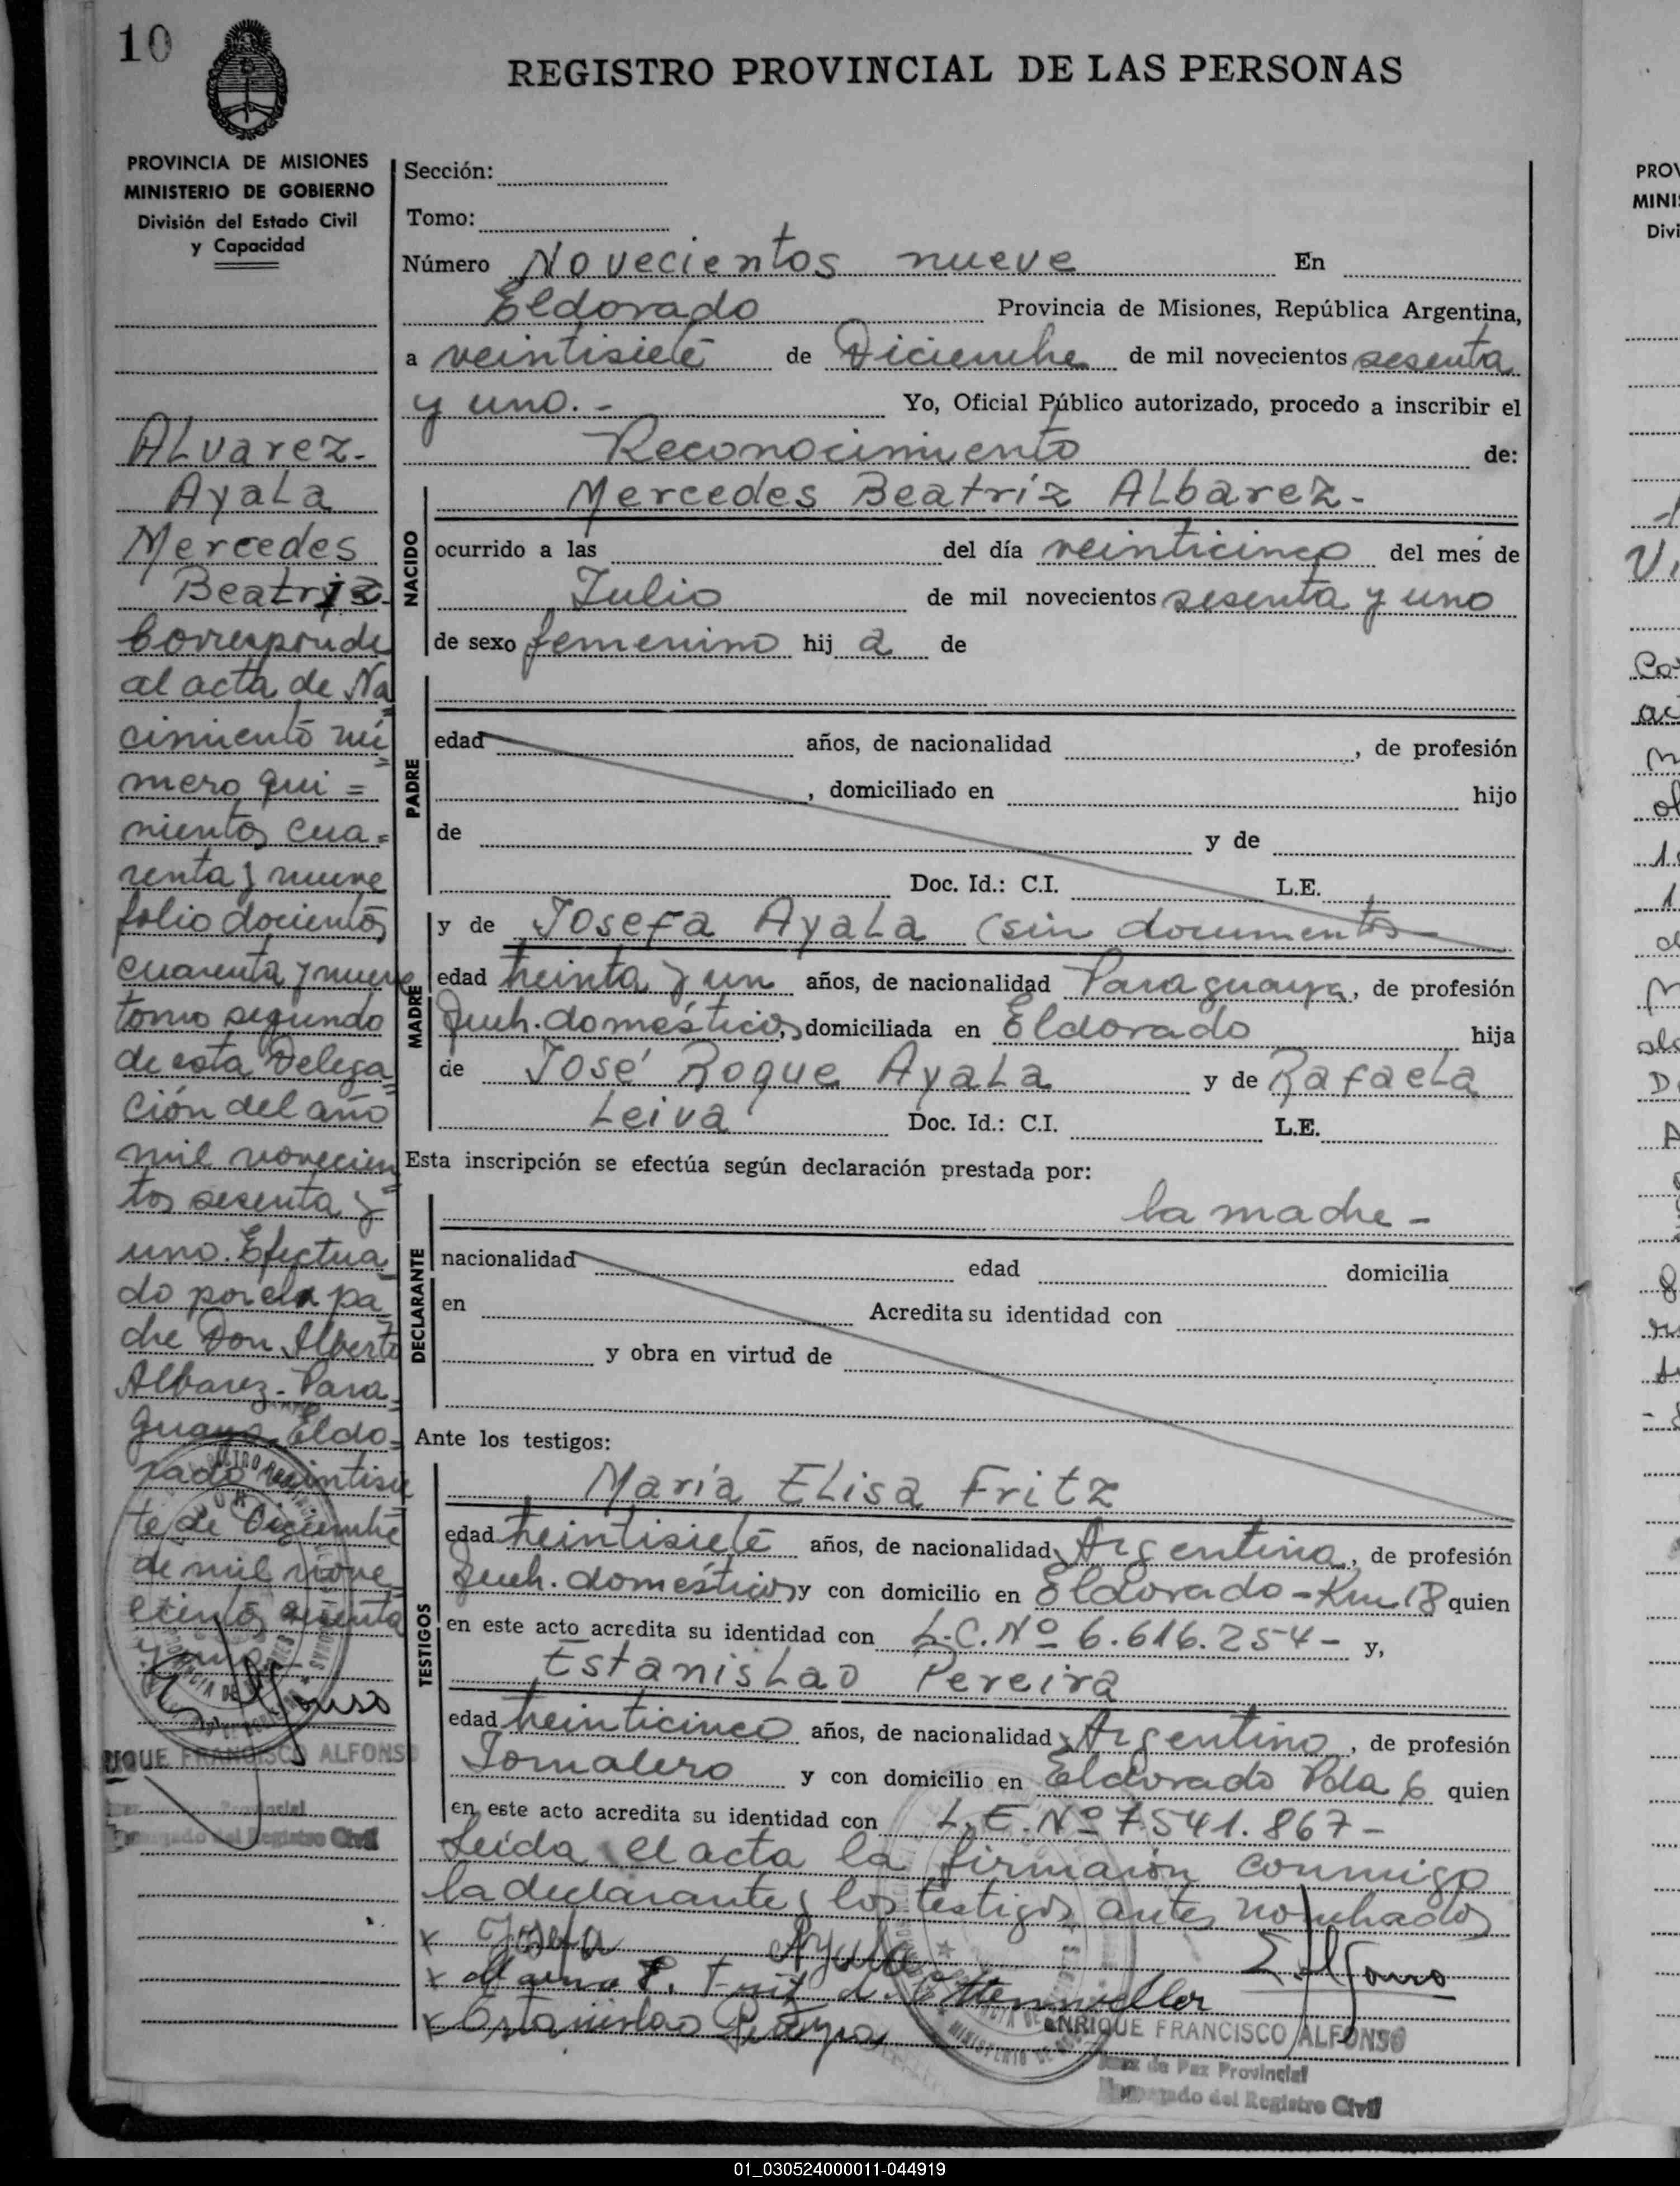 10
REGISTRO PROVINCIAL DE LAS PERSONAS
PROVINCIA DE MISIONES
MINISTERIO DE GOBIERNO
División del Estado Civil
y Capacidad
ALvarez-
AyaLa
Mercedes
Beatriz-
Corresponde
al acta de Na
cimiento nú
mero qui=
nientos cua=
renta y nueve
folio docientos
cuarenta y nueve
tomo segundo
de esta Delega=
ción del año
mil novecien
tos sesenta y
uno. Efectua
do por el pa
dre Don Alberto
Albarez- Para=
guayo Eldo=
rado veintisie
te de Diciembre
de mil nove
cientos sesenta
y uno-
E Alfonso
RIQUE FRANCISCO ALFONSO
Provincial
del Registro Civil
Sección:
Tomo:
Número Novecientos nueve En
Eldorado Provincia de Misiones, República Argentina,
a veintisiete de Diciembre de mil novecientos sesenta
y uno.- Yo, Oficial Público autorizado, procedo a inscribir el
Reconocimiento de:
NACIDO
Mercedes Beatriz ALbarez-
ocurrido a las del día veinticinco del mes de
Julio de mil novecientos sesenta y uno
de sexo femenino hij a de
PADRE
edad años, de nacionalidad , de profesión
, domiciliado en hijo
de y de
Doc. Id.: C.I. L.E.
MADRE
y de Josefa AyaLa (sin documentos
edad treinta y un años, de nacionalidad Paraguaya, de profesión
Queh. domésticos, domiciliada en Eldorado hija
de José Roque AyaLa y de RafaeLa
Leiva Doc. Id.: C.I. L.E.
Esta inscripción se efectúa según declaración prestada por:
DECLARANTE
la madre-
nacionalidad edad domicilia
en Acredita su identidad con
y obra en virtud de
Ante los testigos:
TESTIGOS
María ELisa Fritz
edad treintisiete años, de nacionalidad Argentina, de profesión
Queh. domésticos y con domicilio en Eldorado-Km 18 quien
en este acto acredita su identidad con L.C. Nº 6.616.254- y,
EstanisLao Pereira
edad treinticinco años, de nacionalidad Argentino, de profesión
Jornalero y con domicilio en Eldorado Pda 6 quien
en este acto acredita su identidad con L.E. Nº 7.541.867-
Leída el acta la firmaron conmigo
la declarante y los testigos antes nombrados
x Josefa Ayala
E. Alfonso
x Maria E. Fritz d.
x Estanislao Pereyra
ENRIQUE FRANCISCO ALFONSO
Juez de Paz Provincial
Encargado del Registro Civil
PROV
MINI
Divi
01_030524000011-044919